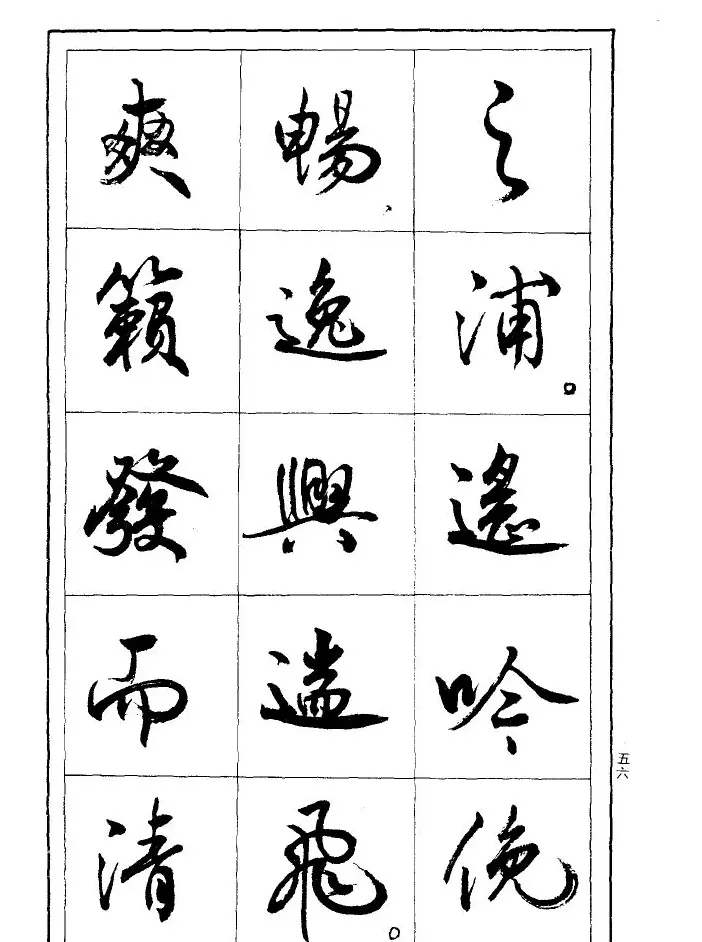 之浦。遙吟俛
暢，逸興遄飛。
爽籟發而清
五六